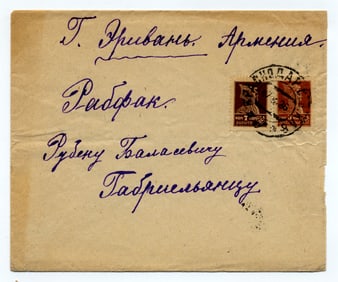 Г. Эривань. Армения.
Рабфак.
Рубену Баласевичу
Габриельянцу